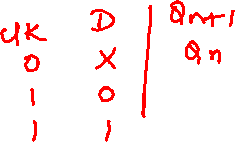 CLK D Qn+1
0 X Qn
1 0
1 1